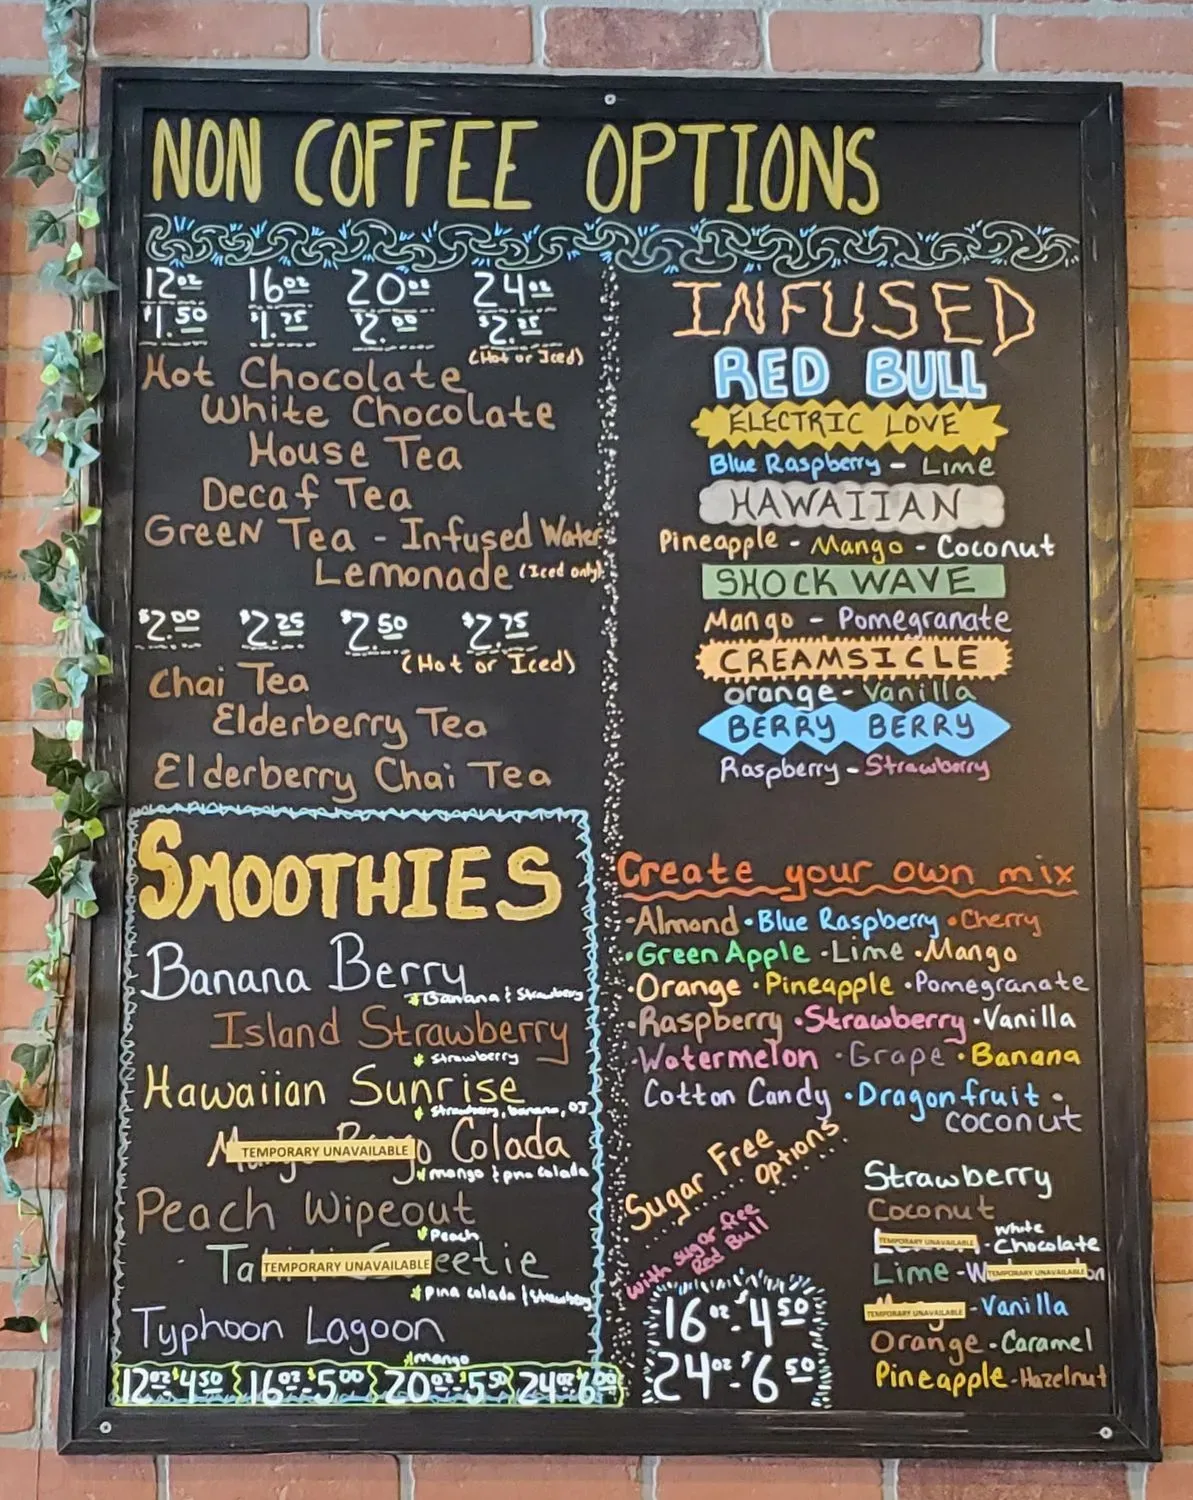 NON COFFEE OPTIONS
12oz 16oz 20oz 24oz
$1.50 $1.75 $2.00 $2.25
(Hot or Iced)
Hot Chocolate
White Chocolate
House Tea
Decaf Tea
Green Tea - Infused Water
Lemonade (Iced only)
$2.00 $2.25 $2.50 $2.75
(Hot or Iced)
Chai Tea
Elderberry Tea
Elderberry Chai Tea
SMOOTHIES
Banana Berry
Banana & Strawberry
Island Strawberry
Strawberry
Hawaiian Sunrise
Strawberry, banana, OJ
TEMPORARY UNAVAILABLE Colada
mango & pina colada
Peach Wipeout
Peach
TEMPORARY UNAVAILABLE
pina colada | Strawberry
Typhoon Lagoon
mango
12oz $4.50 16oz $5.00 20oz $5.50 24oz $6.00
INFUSED
RED BULL
ELECTRIC LOVE
Blue Raspberry - Lime
HAWAIIAN
Pineapple - Mango - Coconut
SHOCK WAVE
Mango - Pomegranate
CREAMSICLE
Orange - Vanilla
BERRY BERRY
Raspberry - Strawberry
Create your own mix
·Almond ·Blue Raspberry ·Cherry
·Green Apple ·Lime ·Mango
·Orange ·Pineapple ·Pomegranate
·Raspberry ·Strawberry ·Vanilla
·Watermelon ·Grape ·Banana
Cotton Candy ·Dragonfruit ·
Coconut
Sugar Free Options
With sugar-free Red Bull
16oz - $4.50
24oz - $6.50
Strawberry
Coconut
TEMPORARY UNAVAILABLE - White Chocolate
Lime - TEMPORARY UNAVAILABLE
TEMPORARY UNAVAILABLE - Vanilla
Orange - Caramel
Pineapple - Hazelnut